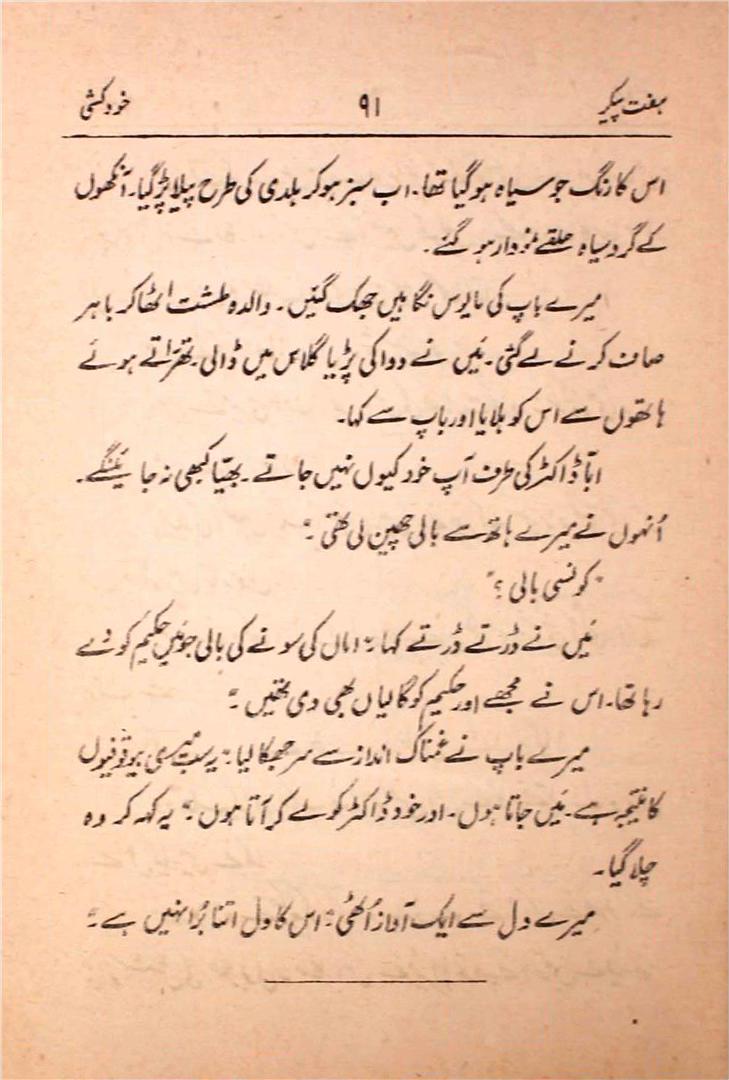 ہفت پیکر ۹۱ خودکشی
اس کا رنگ جو سیاہ ہو گیا تھا۔ اب سبز ہو کر ہلدی کی طرح پیلا پڑ گیا۔ آنکھوں
کے گرد سیاہ حلقے نمودار ہو گئے۔
میرے باپ کی مایوس نگاہیں جھک گئیں۔ والدہ طشت اٹھا کر باہر
صاف کرنے لے گئی۔ مَیں نے دوا کی پڑیا گلاس میں ڈالی۔ تھرّاتے ہوئے
ہاتھوں سے اس کو ہلایا اور باپ سے کہا۔
ابّا ڈاکٹر کی طرف آپ خود کیوں نہیں جاتے۔ بھیّا کبھی نہ جائینگے۔
اُنہوں نے میرے ہاتھ سے بالی چھین لی تھی۔"
"کونسی بالی؟"
مَیں نے ڈرتے ڈرتے کہا۔" اماں کی سونے کی بالی جو مَیں حکیم کو دے
رہا تھا۔ اس نے مجھے اور حکیم کو گالیاں بھی دی تھیں۔"
میرے باپ نے غمناک انداز سے سر جھکا لیا۔" یہ سب میری بیوقوفیوں
کا نتیجہ ہے۔ مَیں جاتا ہوں۔ اور خود ڈاکٹر کو لے کر آتا ہوں۔" یہ کہہ کر وہ
چلا گیا۔
میرے دل سے ایک آواز اُٹھی۔" اس کا دل اتنا بُرا نہیں ہے۔"